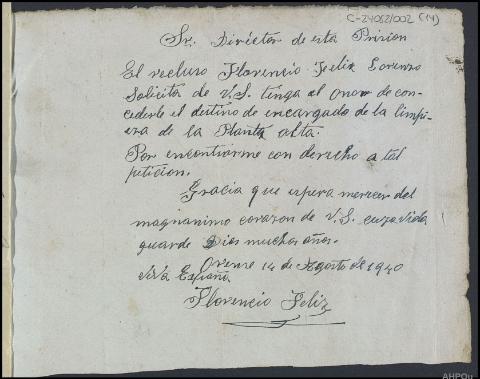 C-24062/002 (14)
Sr. Diréctor de esta Prision
El recluso Florencio Feliz Lorenzo
Solicita de V.S. tenga al onor de con-
cederle el destino de encargado de la limpi-
eza de la Planta alta.
Por encontrarme con derecho a tal
peticion.
Gracia que espera merecer del
magnanimo corazon de V.S. cuya vida
guarde Dios muchos años.
Orense 14 de Agosto de 1940
Viva España
Florencio Feliz
AHPOu